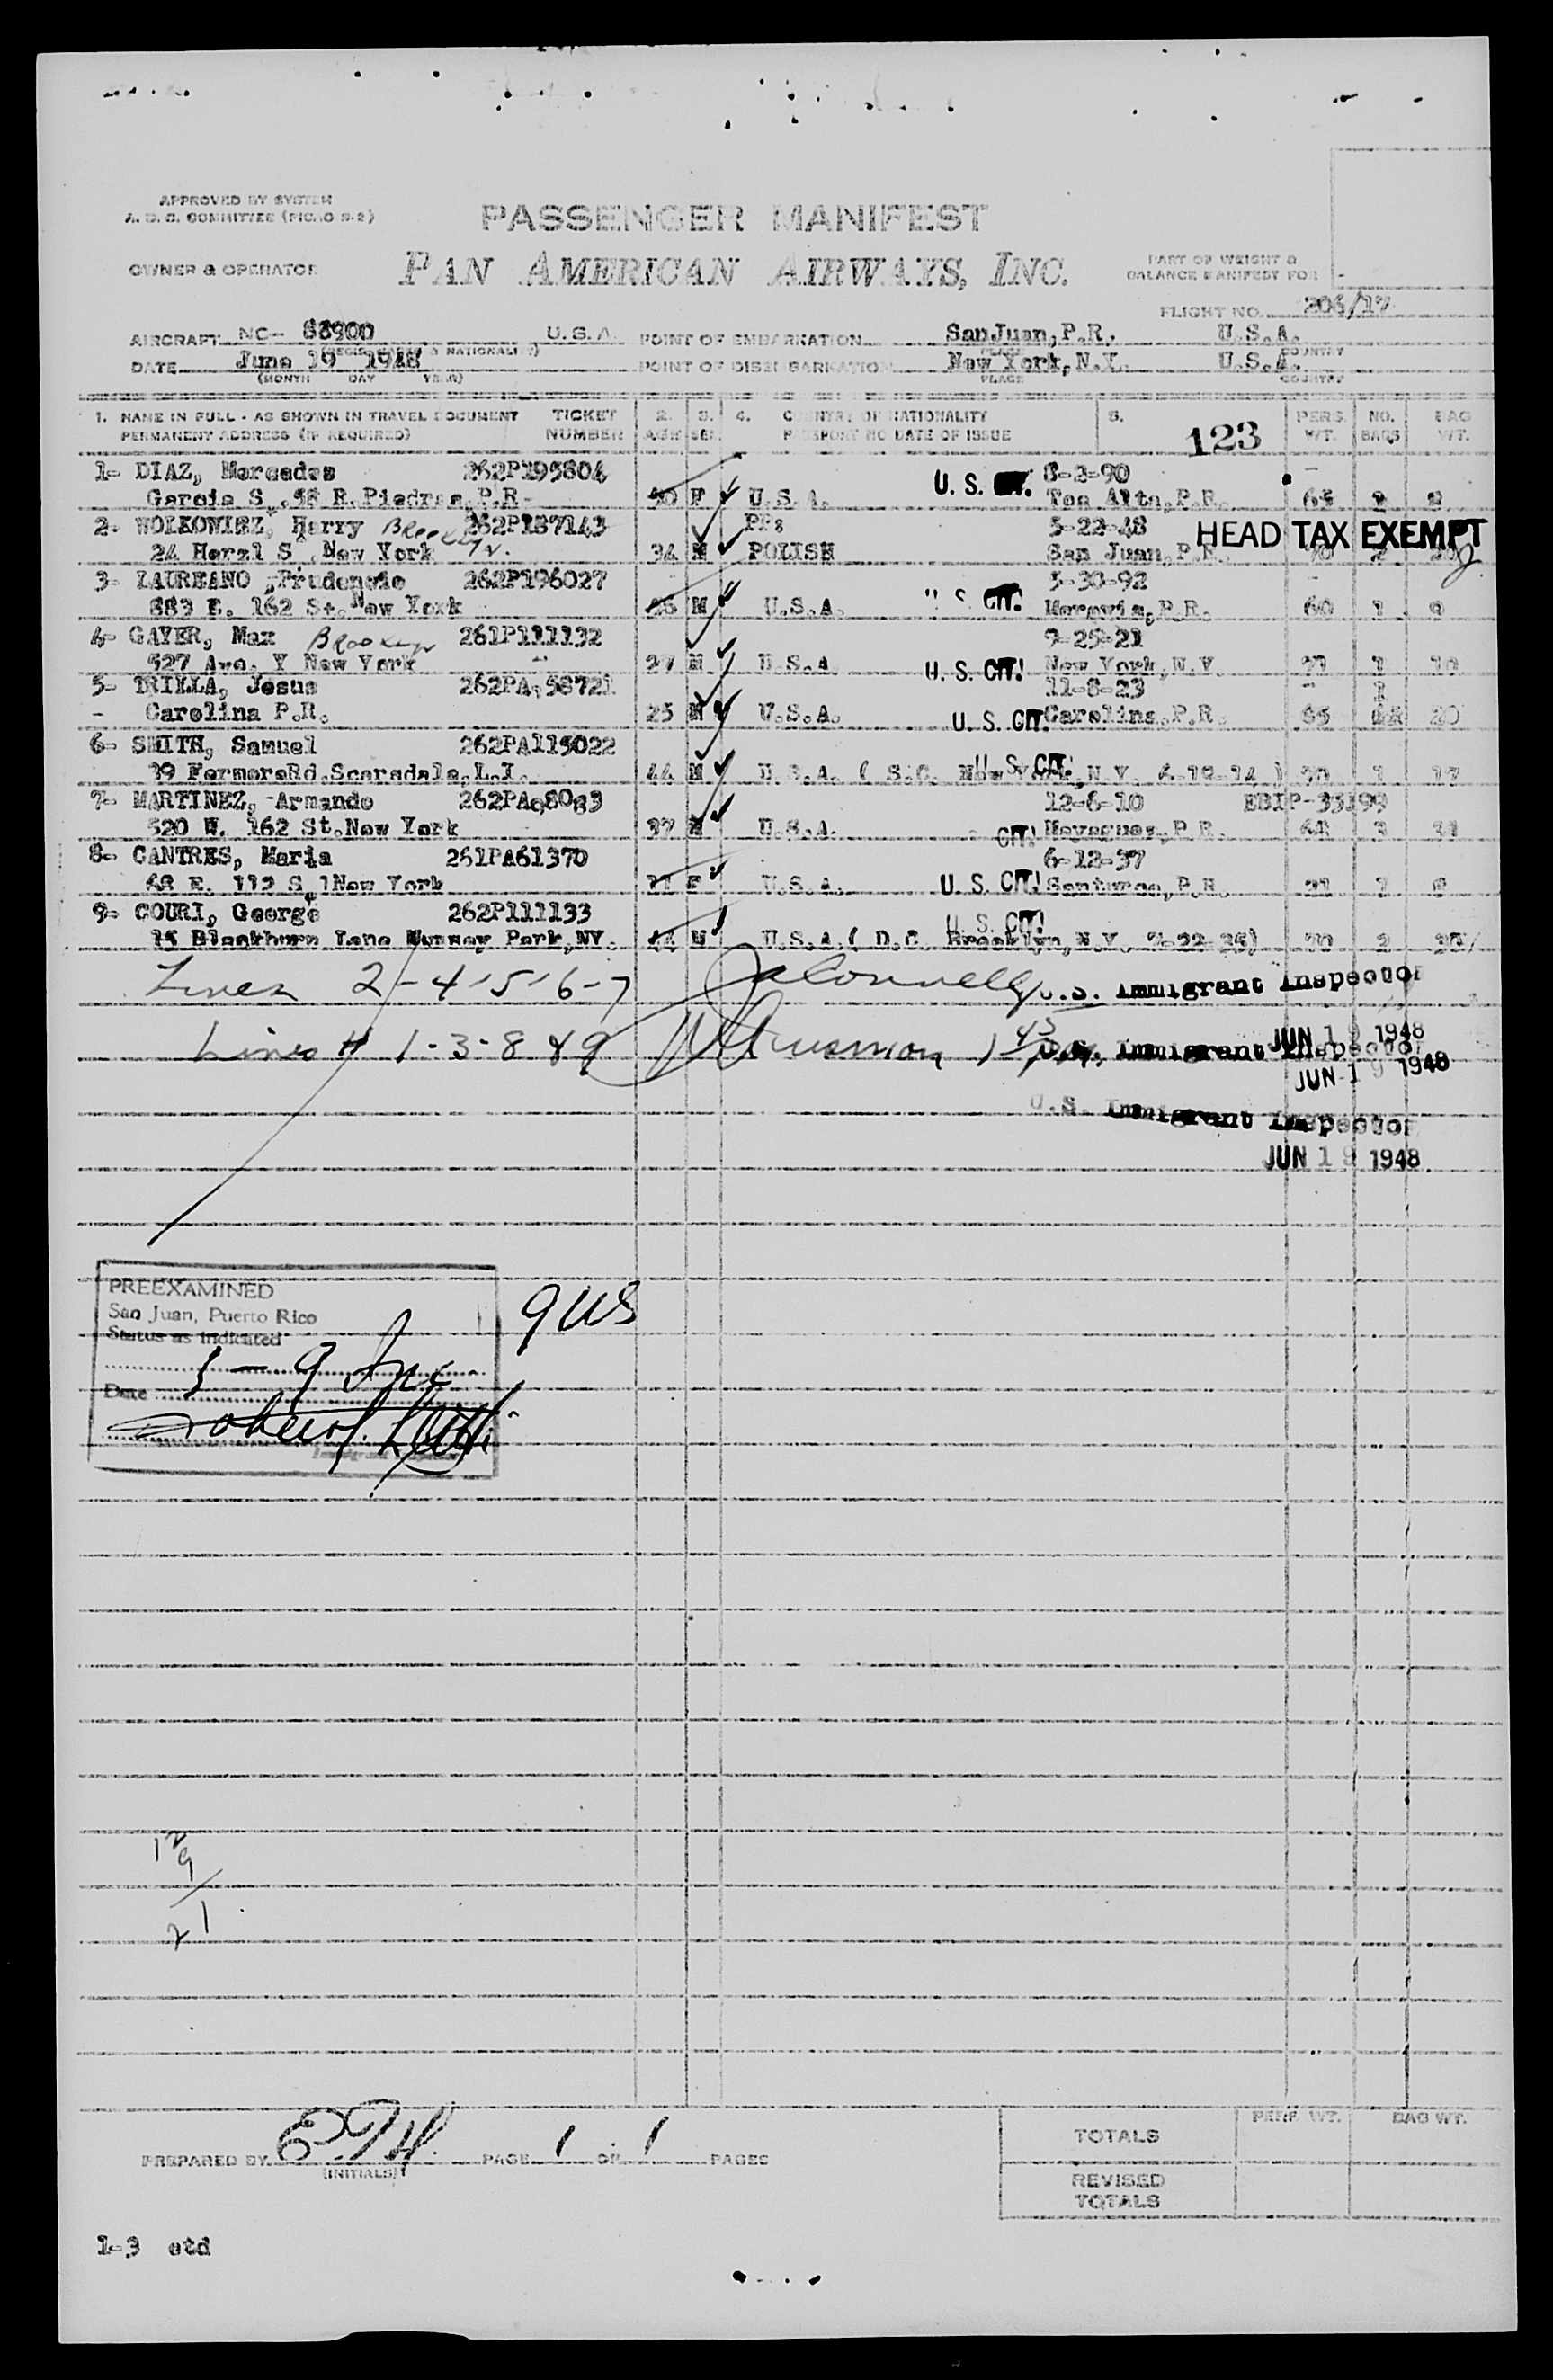 APPROVED BY SYSTEM
A. D. C. COMMITTEE (PICAO 9-2)
PASSENGER MANIFEST
OWNER & OPERATOR
PAN AMERICAN AIRWAYS, INC.
PART OF WEIGHT &
BALANCE MANIFEST FOR
FLIGHT NO. 206/17
AIRCRAFT NC- 88900 U.S.A. POINT OF EMBARKATION San Juan, P.R. U.S.A.
DATE June 19 1948 POINT OF DISEMBARKATION New York, N.Y. U.S.A.
(MONTH DAY YEAR) PLACE COUNTRY
1. NAME IN FULL - AS SHOWN IN TRAVEL DOCUMENT TICKET 2. 3. 4. COUNTRY OF NATIONALITY 5. PERS. NO. BAG
PERMANENT ADDRESS (IF REQUIRED) NUMBER AGE SEX PASSPORT NO DATE OF ISSUE 123 WT. BAGS WT.
1- DIAZ, Mercedes 262P195804 U. S. 8-2-90
Garcia S .58 R.Piedras, P.R. F U.S.A. Toa Alta, P.R.
2- WOLKOWISZ, Harry Brooklyn 262P187143 PP: 5-22-48 HEAD TAX EXEMPT
24 Herzl S , New York 34 M POLISH San Juan, P.R.
3- LAUREANO , Prudencio 262P196027 5-30-92
883 E. 162 St. New York M U.S.A. U S CIT! Morovis, P.R. 60 1
4- GAYER, Max Brooklyn 261P111132 9-25-21
527 Ave. Y New York 27 M U.S.A. U. S. CIT! New York, N.Y.
5- TRILLA, Jesus 262PA 58721 11-8-23
- Carolina P.R. 25 M U.S.A. U. S. CIT. Carolina, P.R. 20
6- SMITH, Samuel 262PA115022
39 FarmersRd.Scarsdale, L.I. 44 M U.S.A. ( S.C. New York, N.Y. 6-19-14 ) U. S. CIT! 1 17
7- MARTINEZ, Armando 262PA 8083 12-6-10 EBIP-33199
520 W. 162 St. New York 37 M U.S.A. CIT! Mayaguez, P.R. 3
8- CANTRES, Maria 261PA61370 6-12-37
68 E. 112 S New York F U.S.A. U. S. CIT! Santurce, P.R.
9- COURI, George 262P111133 U. S. CIT!
15 Blackburn Lane Munsey Park, NY. M U.S.A. ( D.C. Brooklyn, N.Y. 7-22-25) 2
Lines 2-4-5-6-7 U.S. Immigrant Inspector
JUN 19 1948
Lines # 1-3-8 & 9 U.S. Immigrant Inspector
JUN 19 1948
U.S. Immigrant Inspector
JUN 19 1948
PREEXAMINED
San Juan, Puerto Rico
Status as indicated
1 - 9 Inc
Date
9 US
12
9
21
PREPARED BY ETH PAGE 1 OF 1 PAGES
(INITIALS)
PERS. WT. BAG WT.
TOTALS
REVISED
TOTALS
1-3 etd